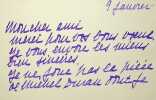 9 Janvier
Mon cher ami
merci pour vos bons vœux
je vous envoie les miens
bien sincères
je ne joue pas la pièce
de Michel